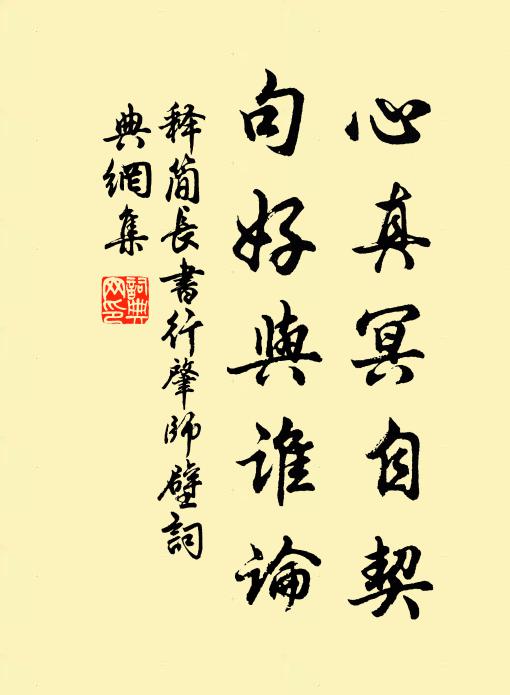 心真冥自契
句好與誰論
释简長書行肇師壁詞
典網集
詞典网印